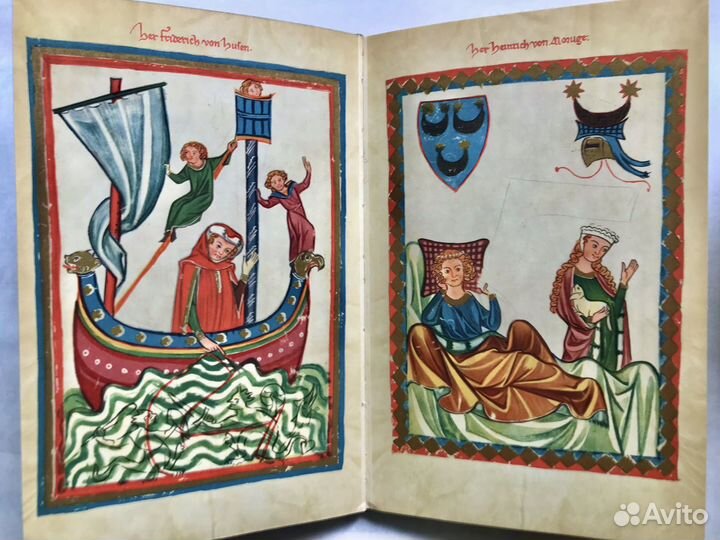 Her Friderich von Husen.
Her Heinrich von Moruge.
Avito